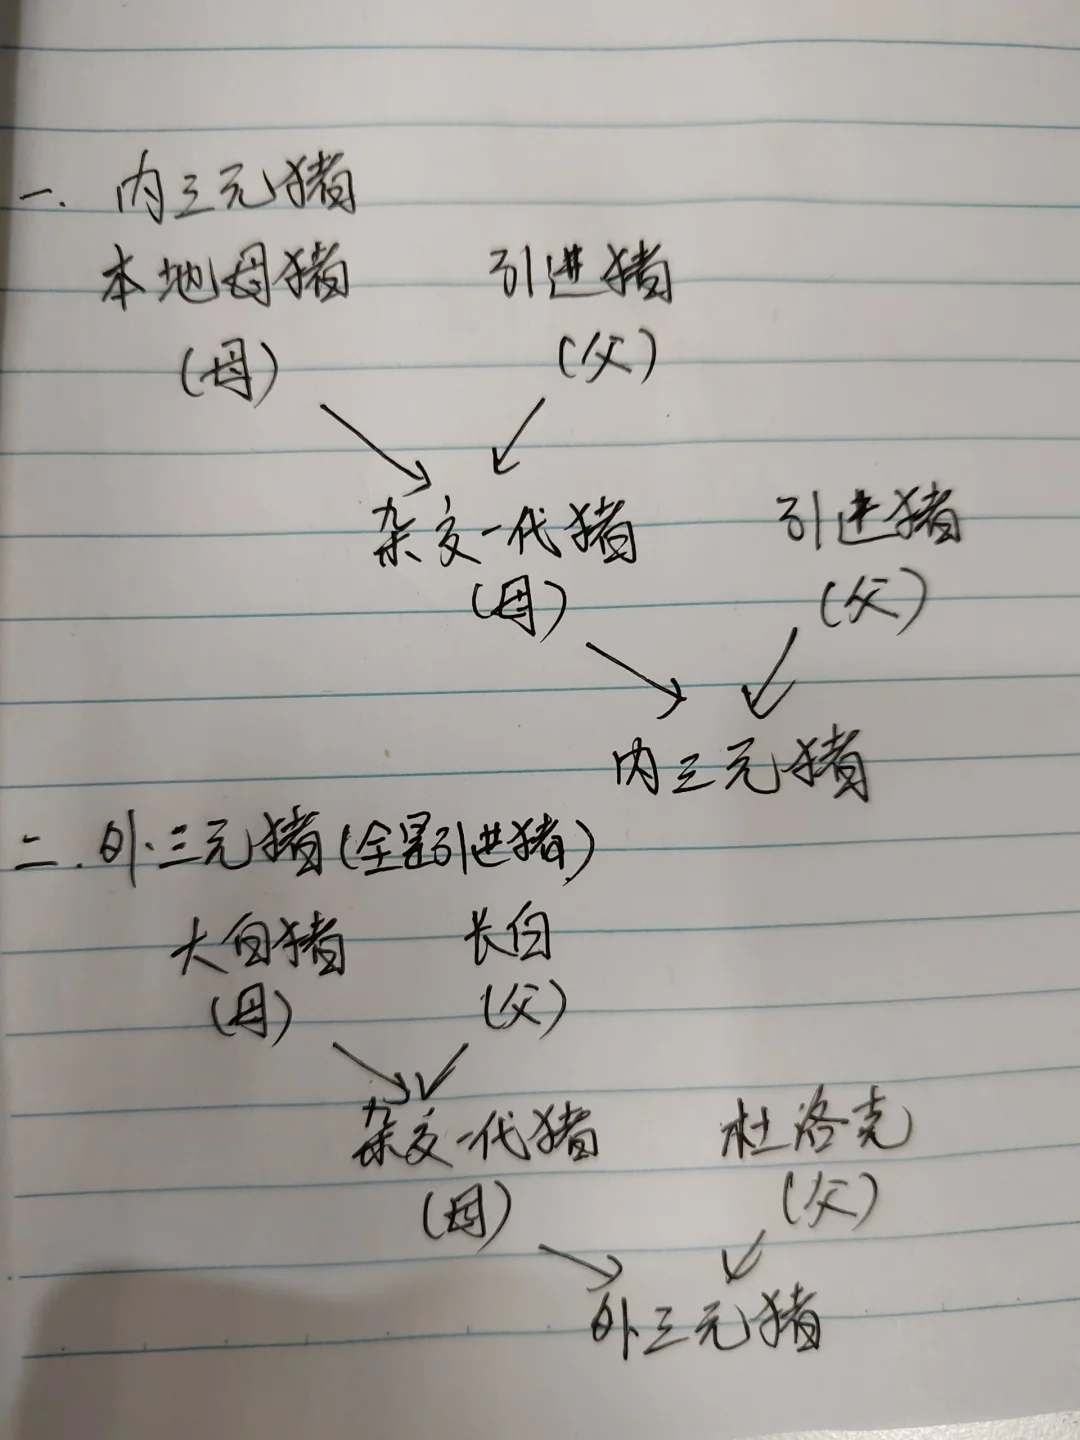 一. 内三元猪
本地母猪 引进猪
(母) (父)
杂交一代猪 引进猪
(母) (父)
内三元猪
二. 外三元猪(全是引进猪)
大白猪 长白
(母) (父)
杂交一代猪 杜洛克
(母) (父)
外三元猪